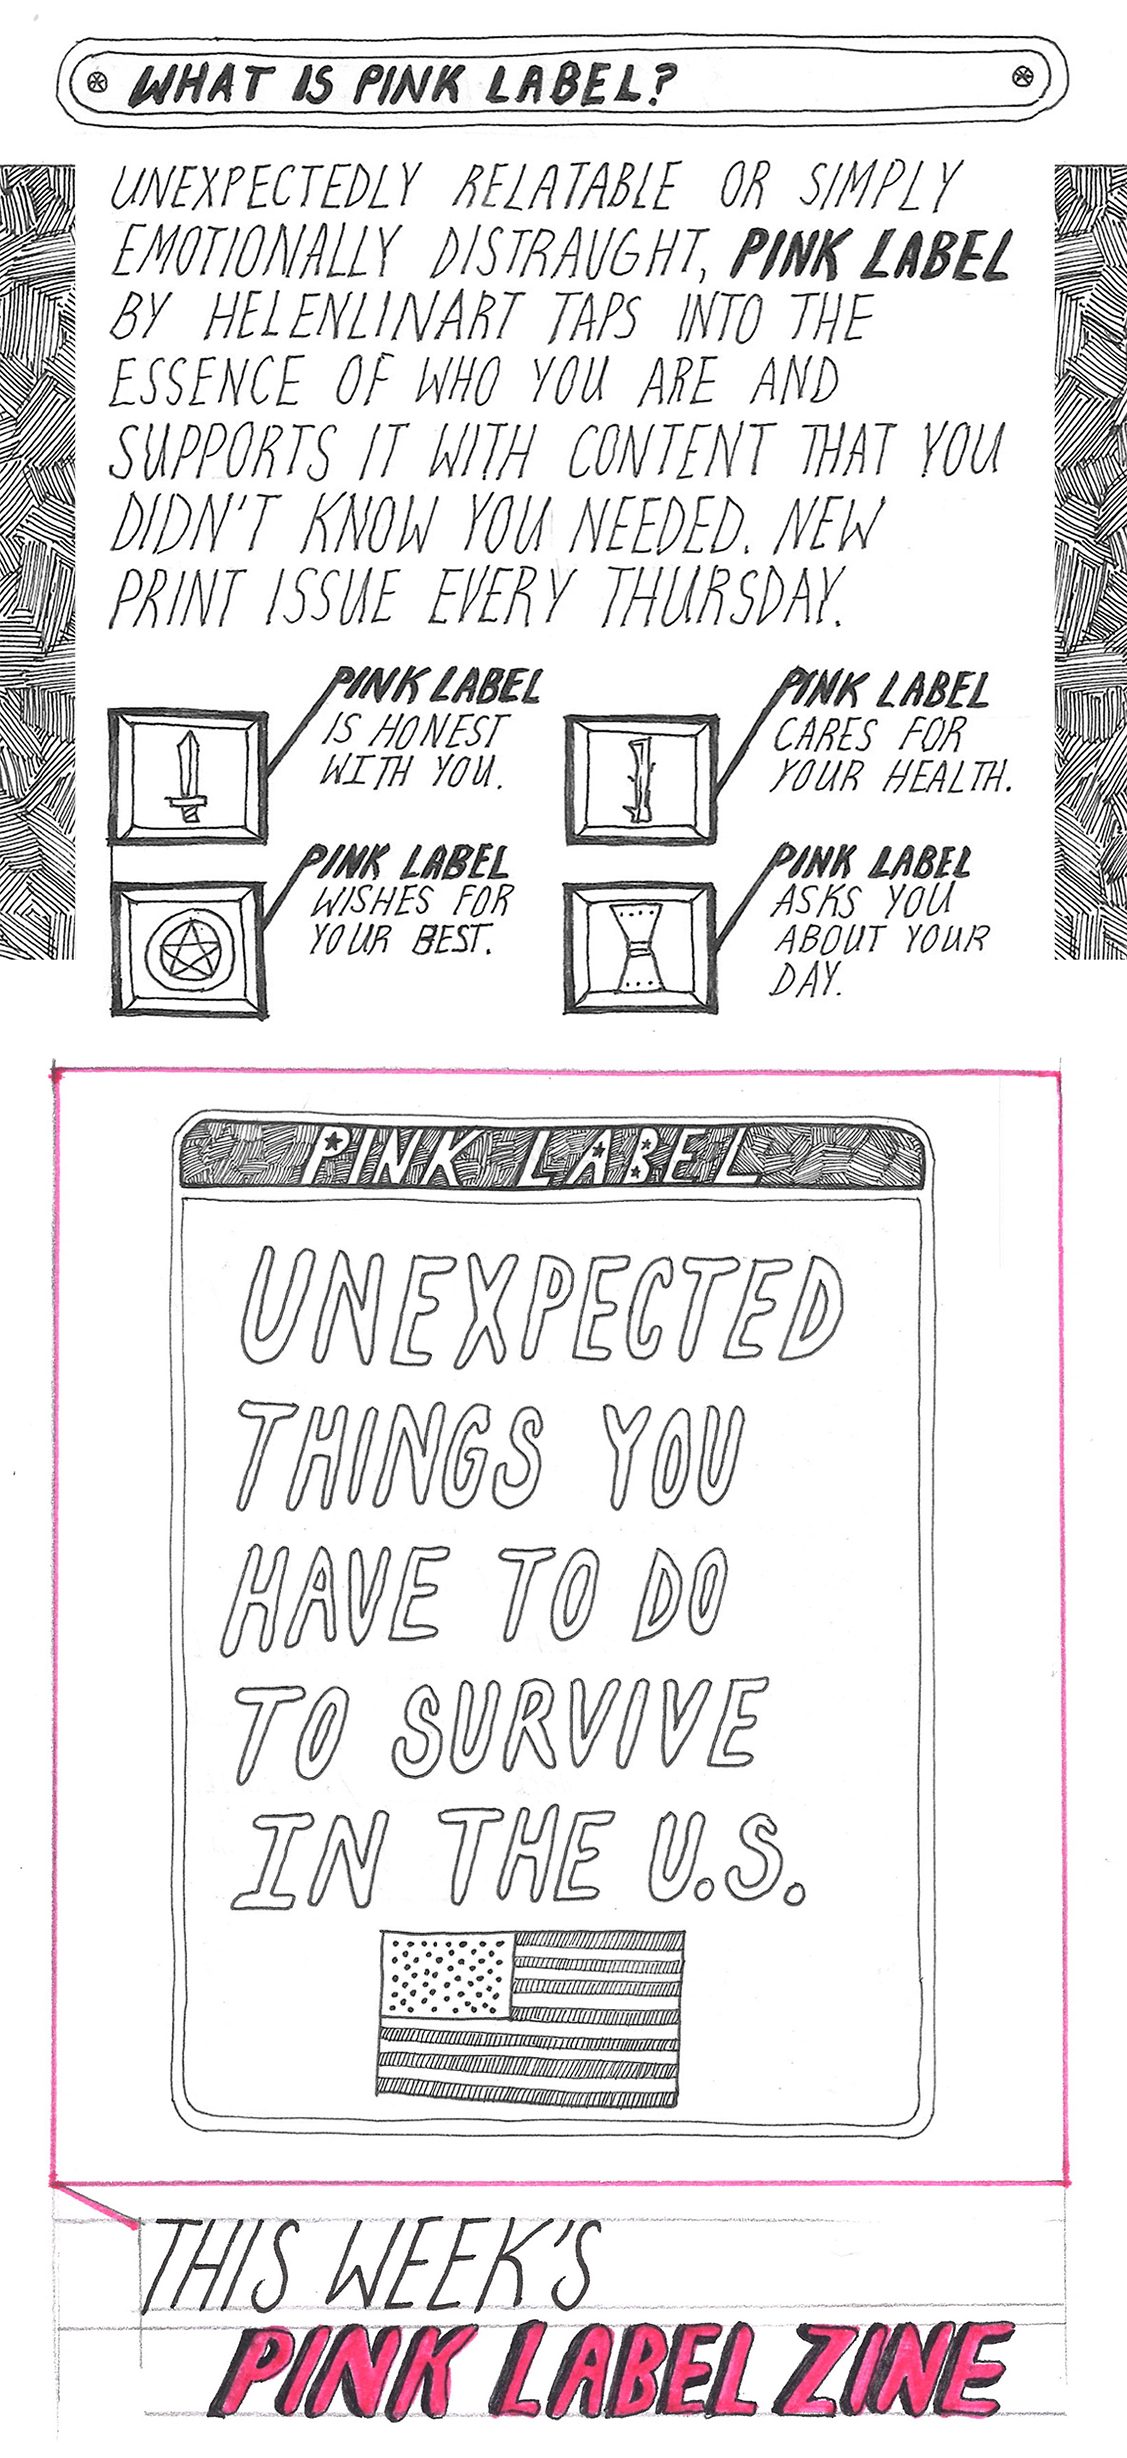 WHAT IS PINK LABEL?
UNEXPECTEDLY RELATABLE OR SIMPLY
EMOTIONALLY DISTRAUGHT, PINK LABEL
BY HELENLINART TAPS INTO THE
ESSENCE OF WHO YOU ARE AND
SUPPORTS IT WITH CONTENT THAT YOU
DIDN'T KNOW YOU NEEDED. NEW
PRINT ISSUE EVERY THURSDAY.
PINK LABEL
IS HONEST
WITH YOU.
PINK LABEL
CARES FOR
YOUR HEALTH.
PINK LABEL
WISHES FOR
YOUR BEST.
PINK LABEL
ASKS YOU
ABOUT YOUR
DAY.
PINK LABEL
UNEXPECTED
THINGS YOU
HAVE TO DO
TO SURVIVE
IN THE U.S.
THIS WEEK'S
PINK LABEL ZINE